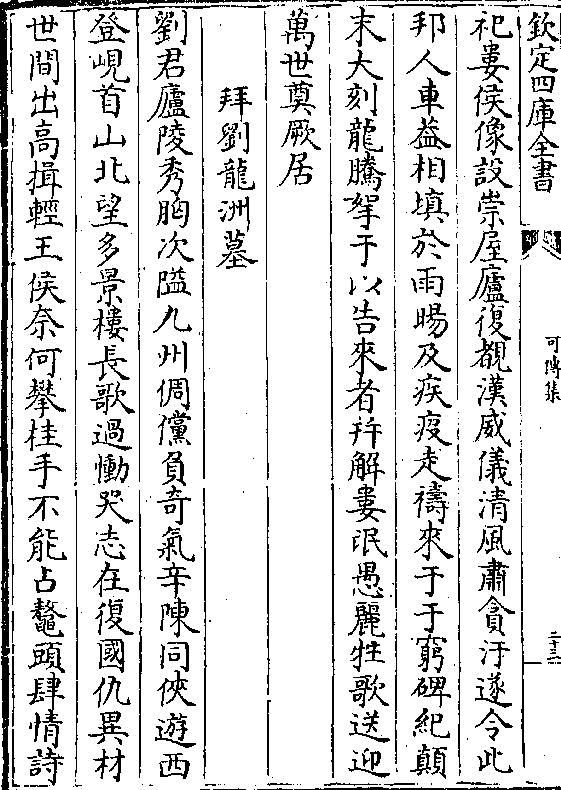 欽定四庫全書
可傳集
二十三
祀婁侯像設崇屋廬復覩漢威儀清風肅貪汙遂令此
邦人車蓋相填於雨暘及疾疫走禱來于于窮碑紀顛
末大刻龍騰拏于以告來者并解婁氓愚麗牲歌送迎
萬世奠厥居
拜劉龍洲墓
劉君廬陵秀胸次隘九州倜儻負奇氣辛陳同俠遊西
登峴首山北望多景樓長歌過慟哭志在復國仇異材
世間出高揖輕王侯奈何攀桂手不能占鼇頭肆情詩